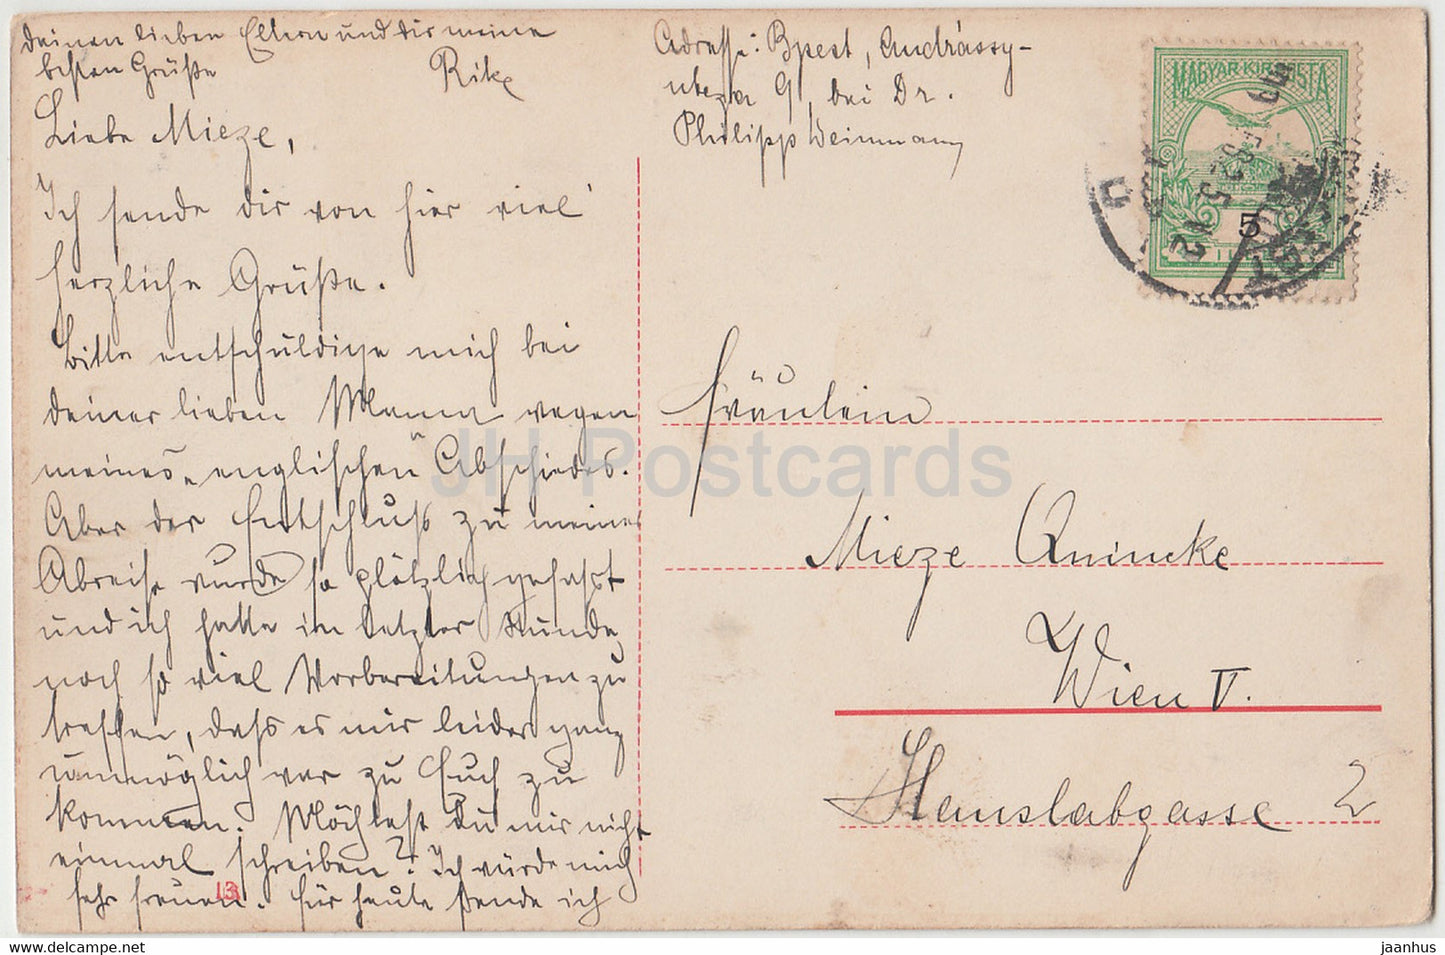 Liebe Mieze,
Ich sende dir von hier viel
herzliche Grüße.
Bitte entschuldige mich bei
deiner lieben Mama wegen
meines „englischen" Abschiedes.
Aber der Entschluß zu meiner
Abreise wurde so plötzlich gefasst
und ich hatte in letzter Stunde
noch so viel Vorbereitungen zu
treffen, dass es mir leider ganz
unmöglich war zu Euch zu
kommen. Möchtest du mir nicht
einmal schreiben? Ich würde mich
sehr freuen. Für heute sende ich
deinen lieben Eltern und dir meine
besten Grüße Rike
Adresse: Bpest, Andrássy-
utcza 9, bei Dr.
Philipp Weinmann
MAGYAR KIR. POSTA
5
Fräulein
Mieze Quincke
Wien V.
Hauslabgasse 2
13
JH Postcards
jaanhus